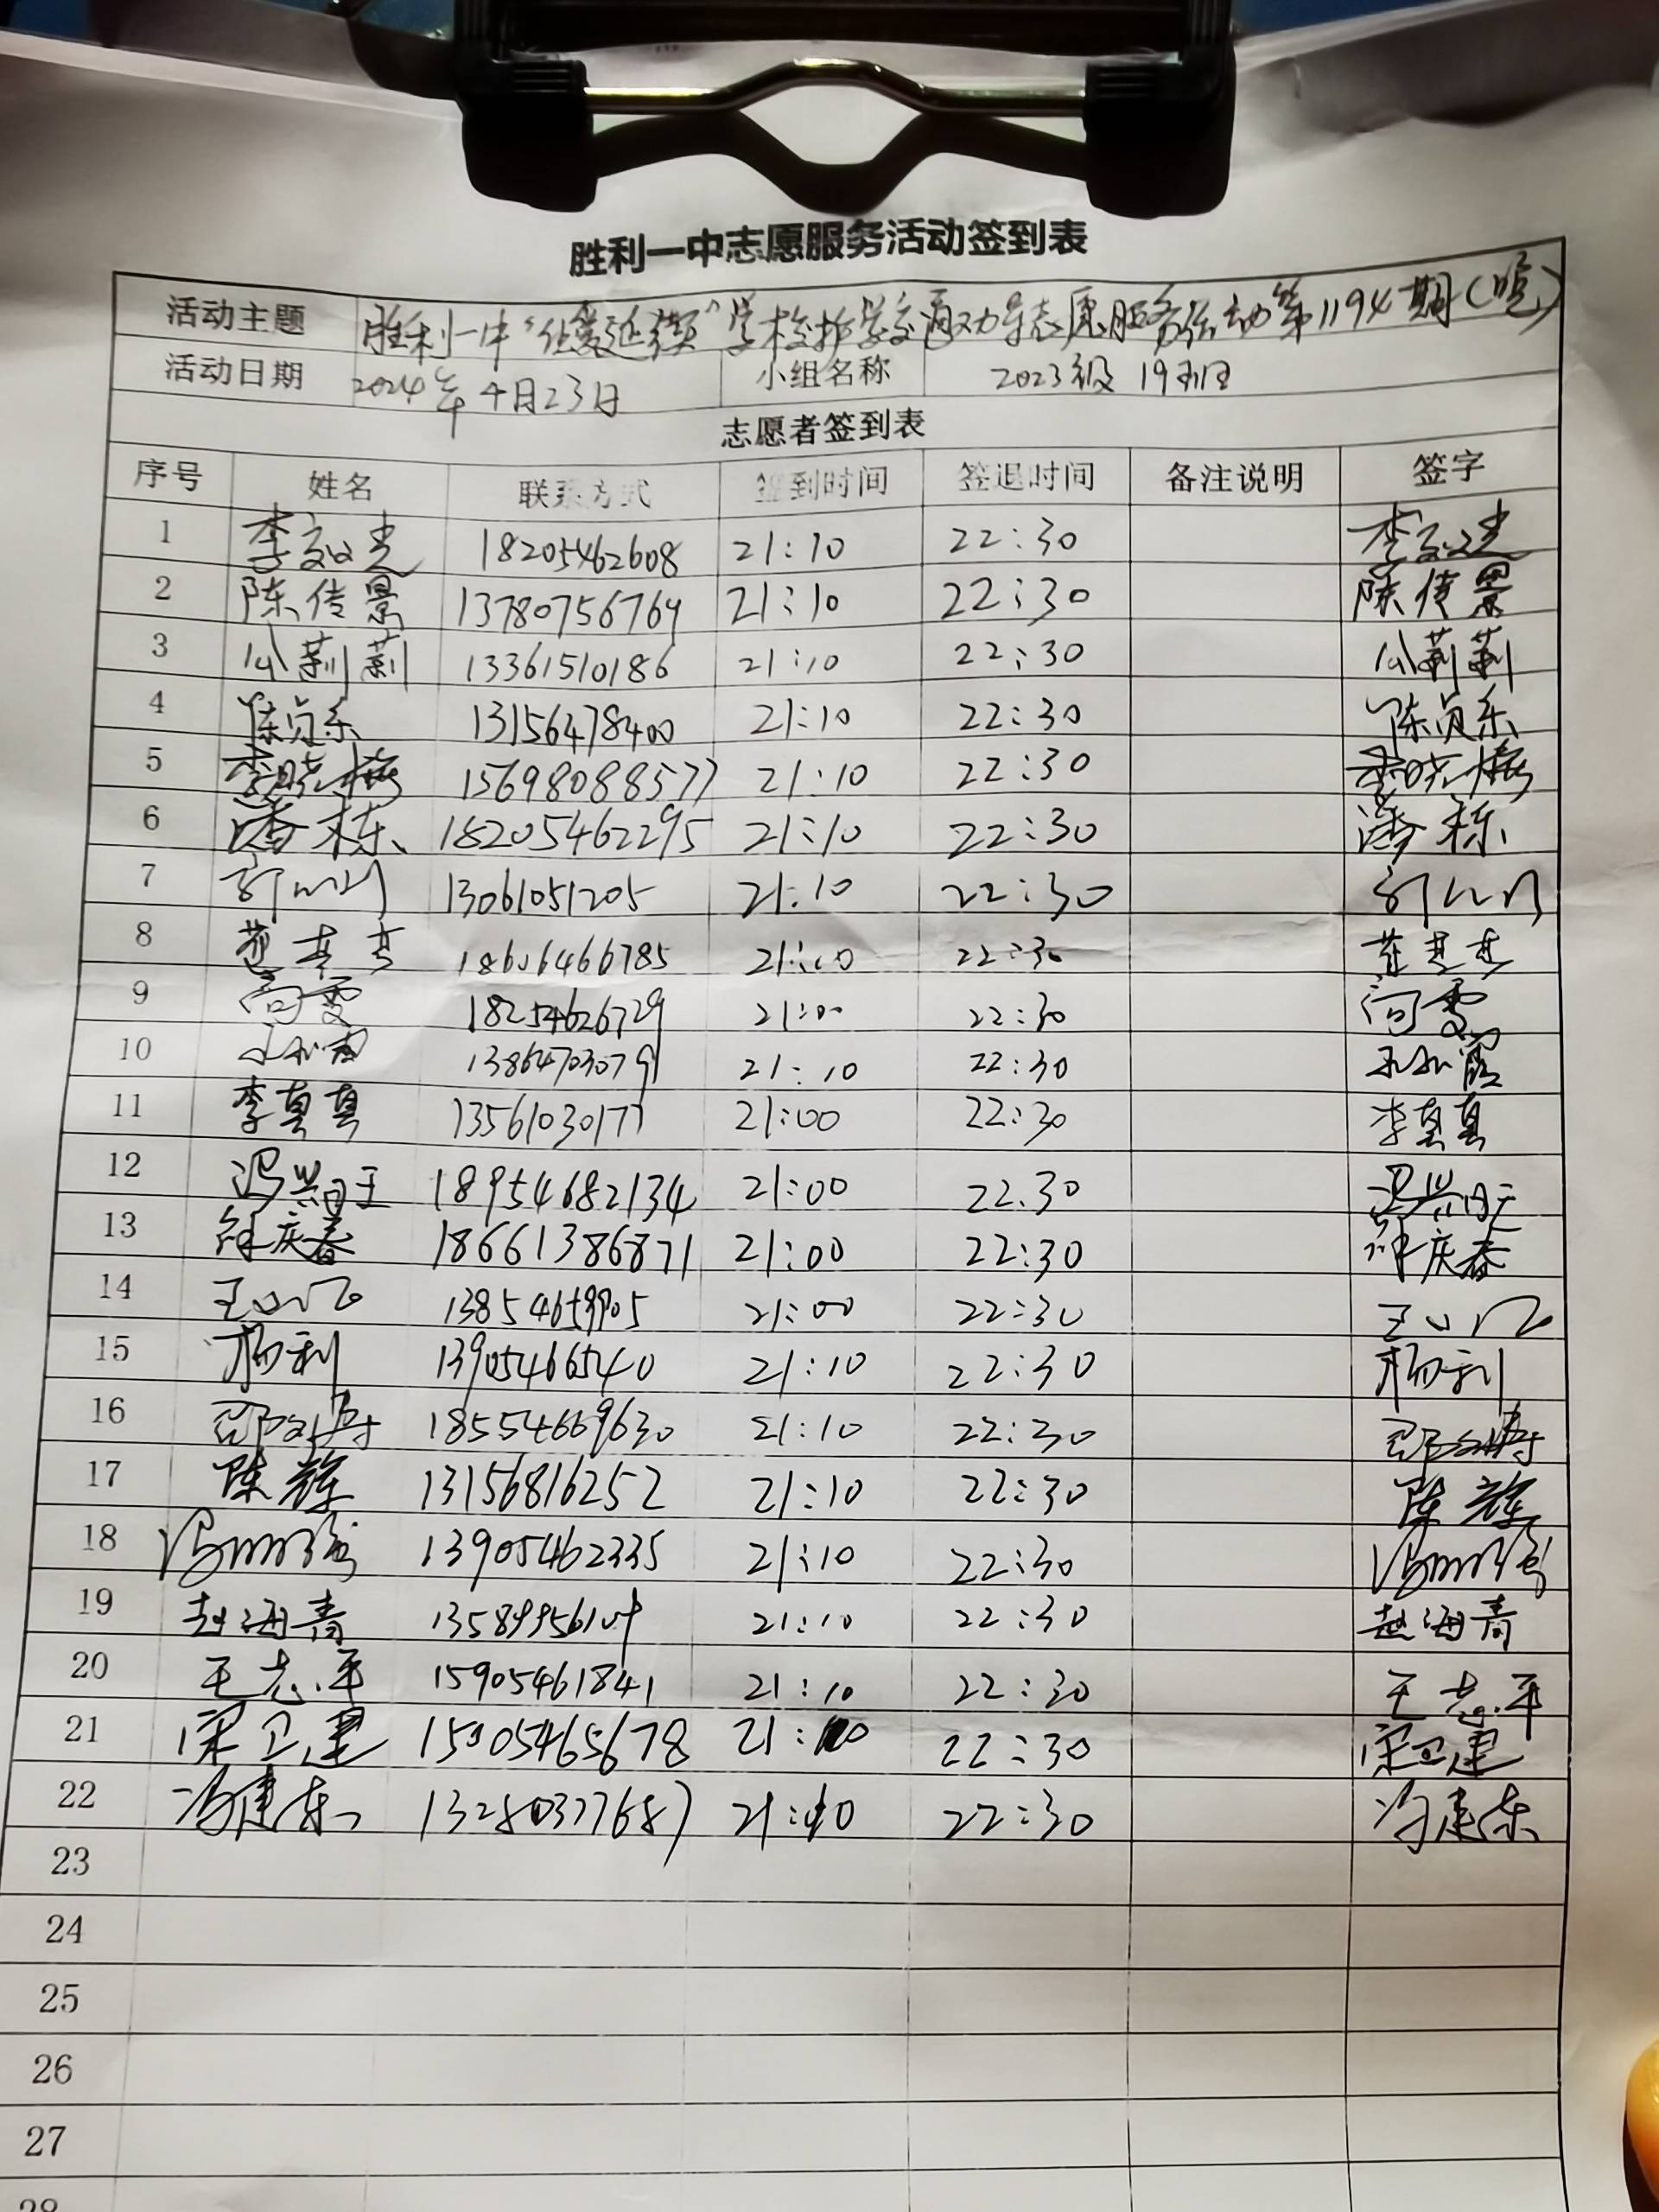 胜利一中志愿服务活动签到表
活动主题 胜利一中“让爱延续”学校护学交通劝导志愿服务活动第1194期(晚)
活动日期 2024年4月23日 小组名称 2023级19班
志愿者签到表
序号 姓名 联系方式 签到时间 签退时间 备注说明 签字
1 18205462608 21:10 22:30
2 陈传景 13780756769 21:10 22:30 陈传景
3 莉莉 13361510186 21:10 22:30 莉莉
4 陈贞东 13156478400 21:10 22:30 陈贞东
5 李晓梅 15698088577 21:10 22:30 李晓梅
6 潘栋 18205462295 21:10 22:30 潘栋
7 13061051205 21:10 22:30
8 21:10 22:30
9 高雯 18254626729 21:00 22:30 高雯
10 13864703079 21:10 22:30
11 李真真 13561030177 21:00 22:30 李真真
12 18954682134 21:00 22:30
13 徐庆春 18661386871 21:00 22:30 徐庆春
14 21:00 22:30
15 杨利 13905466540 21:10 22:30 杨利
16 邵 18554669630 21:10 22:30 邵
17 陈辉 13156816252 21:10 22:30 陈辉
18 13905462335 21:10 22:30
19 赵海青 21:10 22:30 赵海青
20 王志平 15905461841 21:10 22:30 王志平
21 宋卫建 22:30 宋卫建
22 冯建东 13280377687 22:30 冯建东
23
24
25
26
27
28